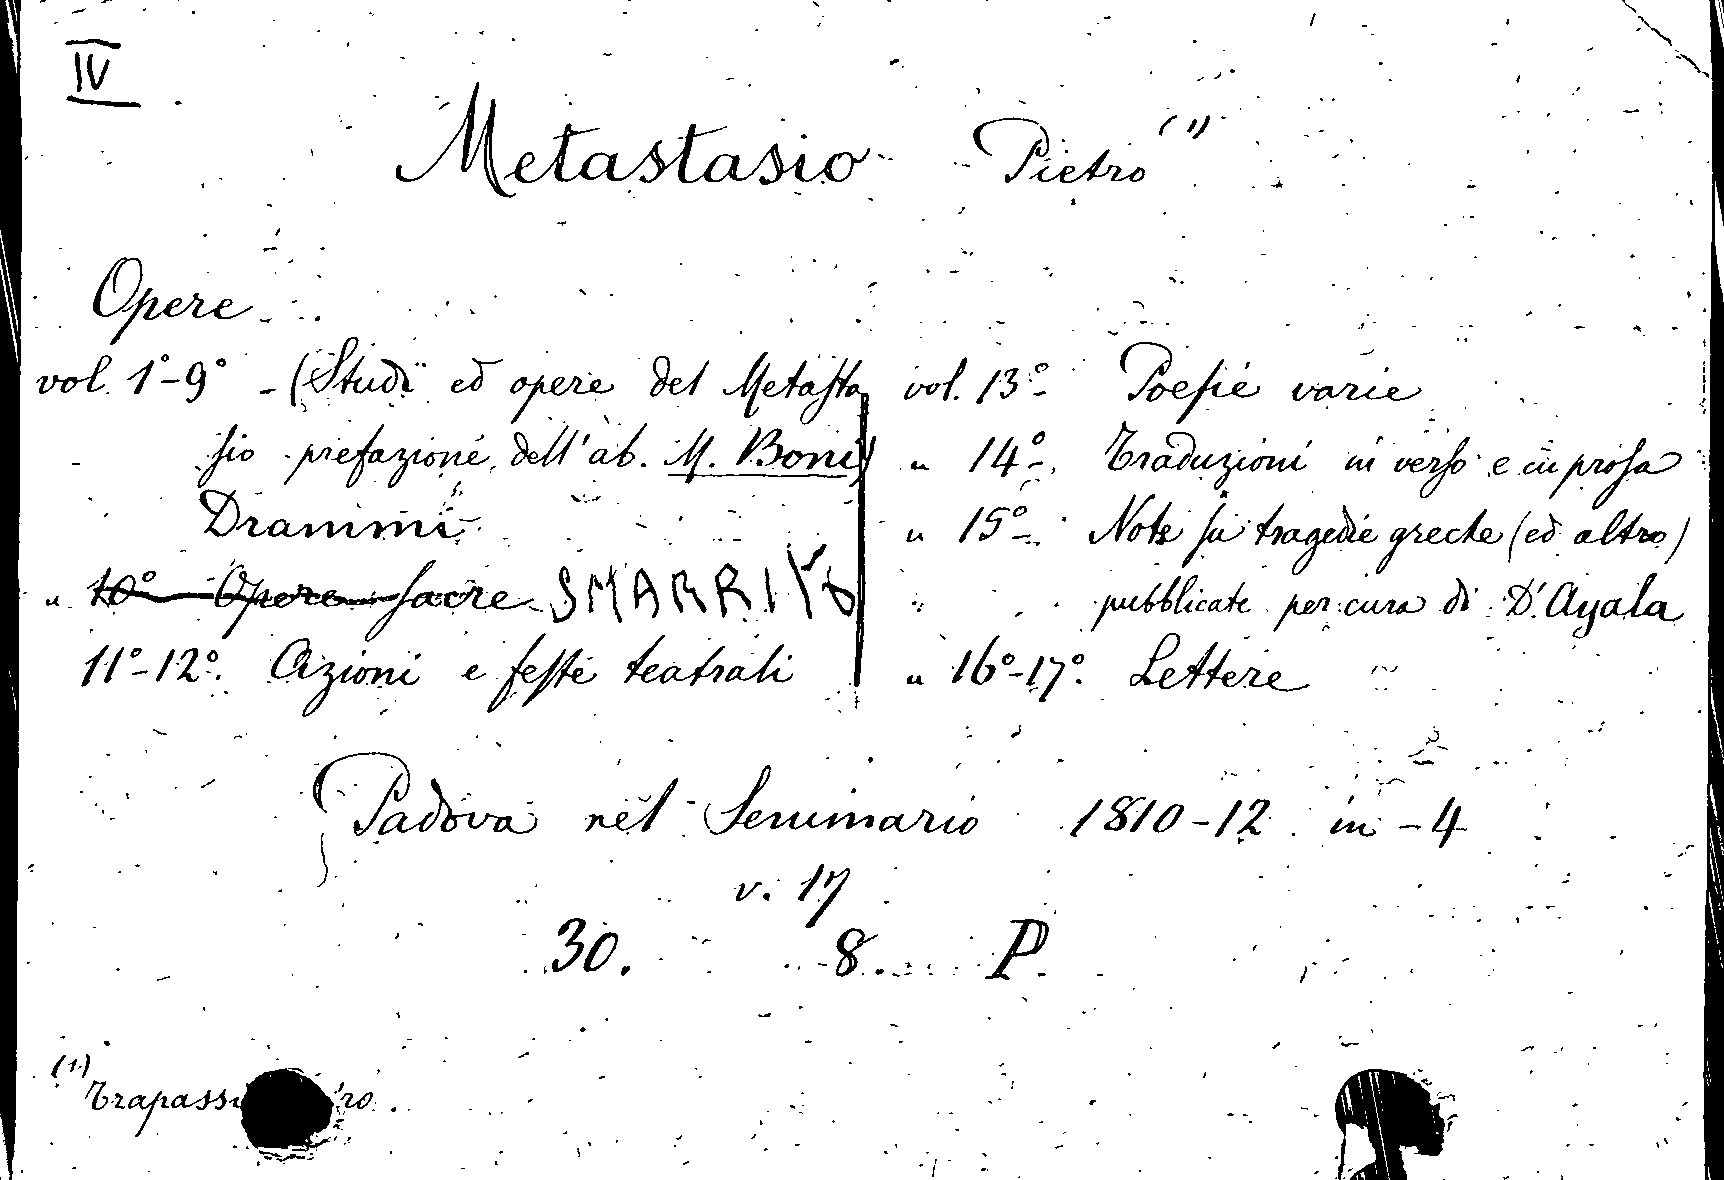 IV
Metastasio Pietro (1)
Opere
vol. 1°-9° - (Studi ed opere del Metasta
sio prefazione dell'ab. M. Boni)
Drammi
" 10° Opere sacre SMARRITO
11°-12°. Azioni e feste teatrali
vol. 13°- Poesie varie
" 14°- Traduzioni in verso e in prosa
" 15°- Note su tragedie greche (ed altro)
pubblicate per cura di D'Ayala
" 16°-17°. Lettere
Padova nel Seminario 1810-12 in-4
v. 17
30. 8. P.
(1)